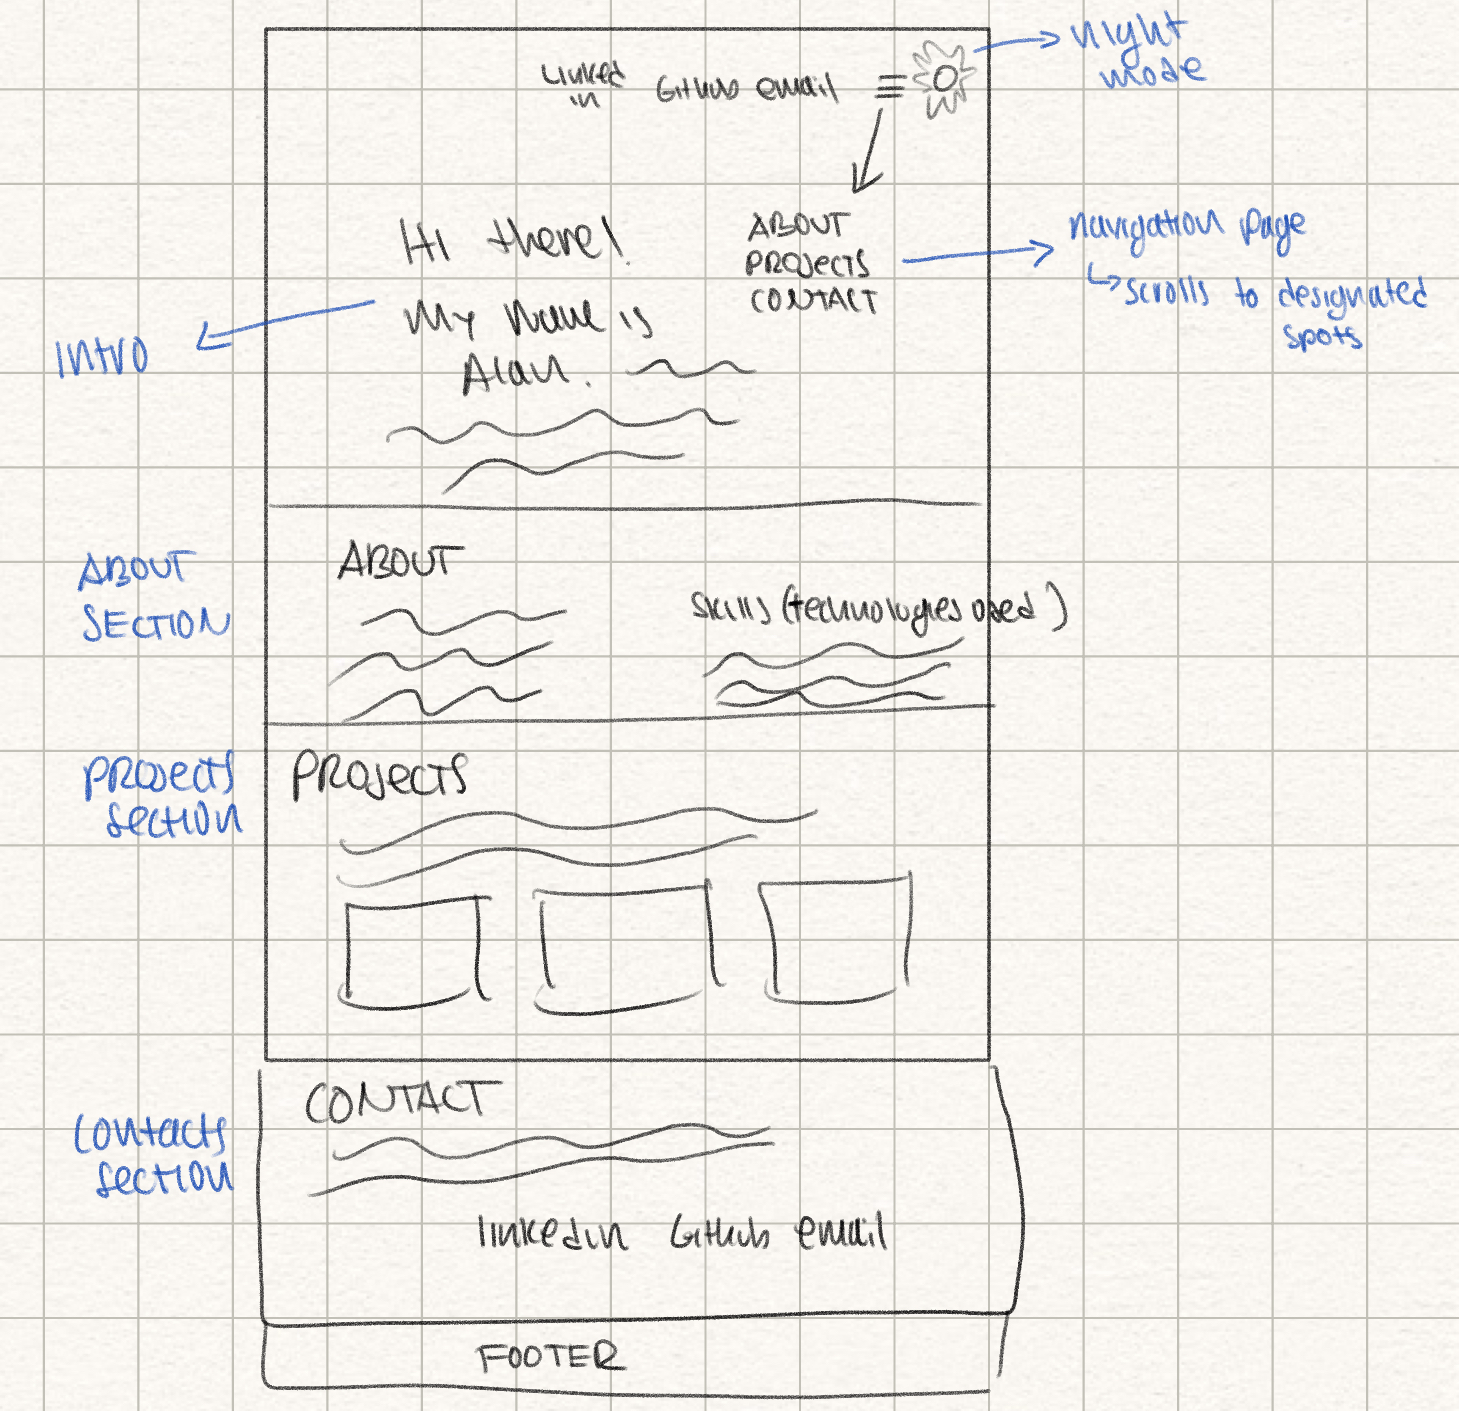 Linked
in
GitHub email
night
mode
Hi there!
My Name is
Alan.
ABOUT
PROJECTS
CONTACT
navigation page
scrolls to designated
spots
INTRO
ABOUT
SECTION
ABOUT
Skills (technologies used)
PROJECTS
Section
PROJECTS
CONTACT
Contacts
section
linkedin GitHub email
FOOTER